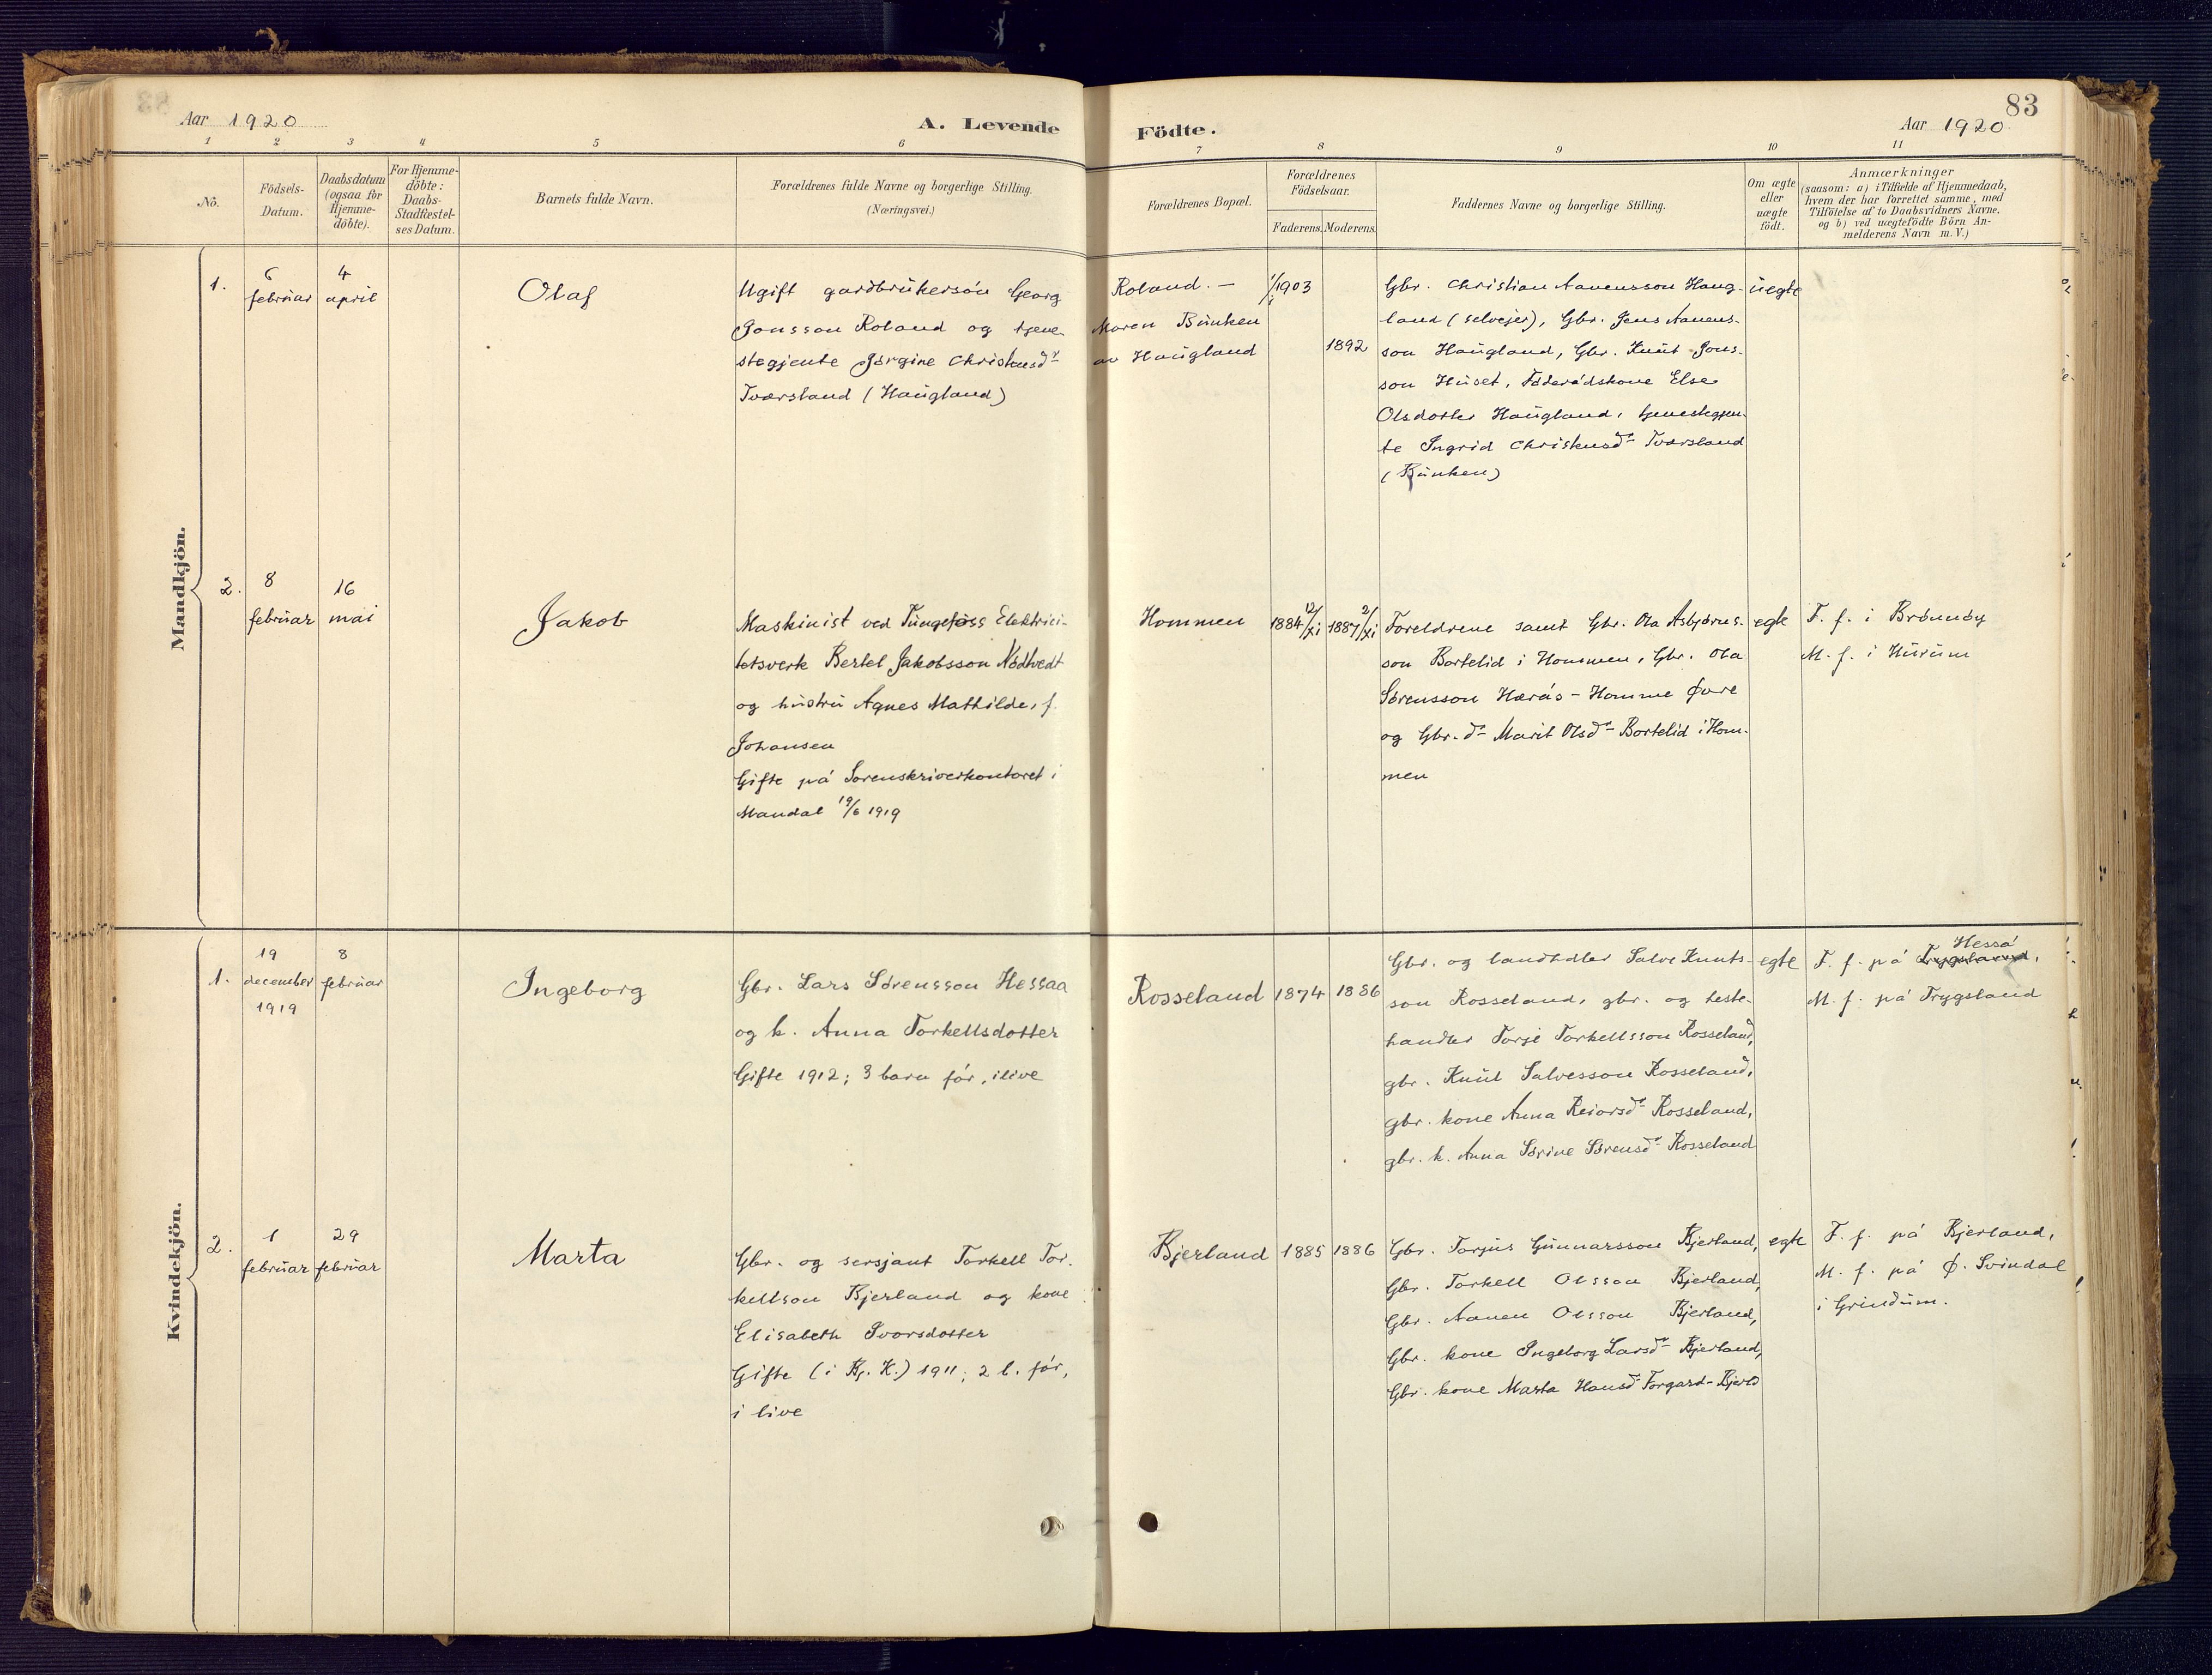 83
Aar 1920
A. Levende
Födte.
Aar 1920
1 2 3 4 5 6 7 8 9 10 11
No.
Födsels-
Datum.
Daabsdatum
(ogsaa för
Hjemme-
döbte).
For Hjemme-
döbte:
Daabs-
Stadfæstel-
ses Datum.
Barnets fulde Navn.
Forældrenes fulde Navne og borgerlige Stilling.
(Næringsvei.)
Forældrenes Bopæl.
Forældrenes
Födselsaar.
Faderens. Moderens.
Faddernes Navne og borgerlige Stilling.
Om ægte
eller
uægte
födt.
Anmærkninger
(saasom: a) i Tilfælde af Hjemmedaab,
hvem der har forrettet samme, med
Tilföielse af to Daabsvidners Navne.
og b) ved uægtefödte Börn An-
melderens Navn m. V.)
Mandkjön.
1.
6
februar
4
april
Olaf
Ugift gardbrukersøn Georg
Jonsson Roland og tjene-
stegjente Jørgine Christensdr
Tværsland (Haugland)
Roland. –
Maren Bunken
av Haugland
1/1903
1892
Gbr. Christian Aanensson Haug-
land (selvejer), Gbr. Jens Aanens-
son Haugland, Gbr. Knut Jons-
son Huset, Føderådskone Else
Olsdotter Haugland, tjenestegjen-
te Ingrid Christensdr Tværsland
(Bunken)
uegte
2.
8
februar
16
mai
Jakob
Maskinist ved Tungefoss Elektrici-
tetsverk Bertel Jakobsson Nødtvedt
og hustru Agnes Mathilde, f.
Johansen
Gifte på Sorenskriverkontoret i
Mandal 19/6 1919
Hommen
1884 12/xi
1887 2/xi
Foreldrene samt Gbr. Ola Asbjørns-
son Bortelid i Hommen, Gbr. Ola
Sørensson Herås - Homme Øvre
og Gbr. dr Marit Olsdr Bortelid i Hom-
men
egte
F. f. i Brønnøy
M. f. i Hurum
Kvindekjön.
1.
19
december
1919
8
februar
Ingeborg
Gbr. Lars Sørensson Hessaa
og k. Anna Torkellsdotter
Gifte 1912; 3 barn før, ilive
Rosseland
1874
1886
Gbr. og landhdler Salve Knuts-
son Rosseland, gbr. og heste-
handler Torje Torkellsson Rosseland,
gbr. Knut Salvesson Rosseland,
gbr. kone Anna Reiarsdr Rosseland,
gbr. k. Anna Sørine Sørensdr Rosseland
egte
Hesså
F. f. på Trygsland,
M. f. på Trygsland
2.
1
februar
29
februar
Marta
Gbr. og sersjant Torkell Tor-
kellson Bjerland og kone
Elisabeth Ivarsdotter
Gifte (i Bj. K.) 1911; 2 b. før,
i live
Bjerland
1885
1886
Gbr. Torjus Gunnarsson Bjerland,
Gbr. Torkell Olsson Bjerland,
Gbr. Aanen Olsson Bjerland,
Gbr. kone Ingeborg Larsdr Bjerland,
Gbr. kone Marta Hansdr Torgard-Bjerld
egte
F. f. på Bjerland,
M. f. på Ø. Svindal
i Grindum.